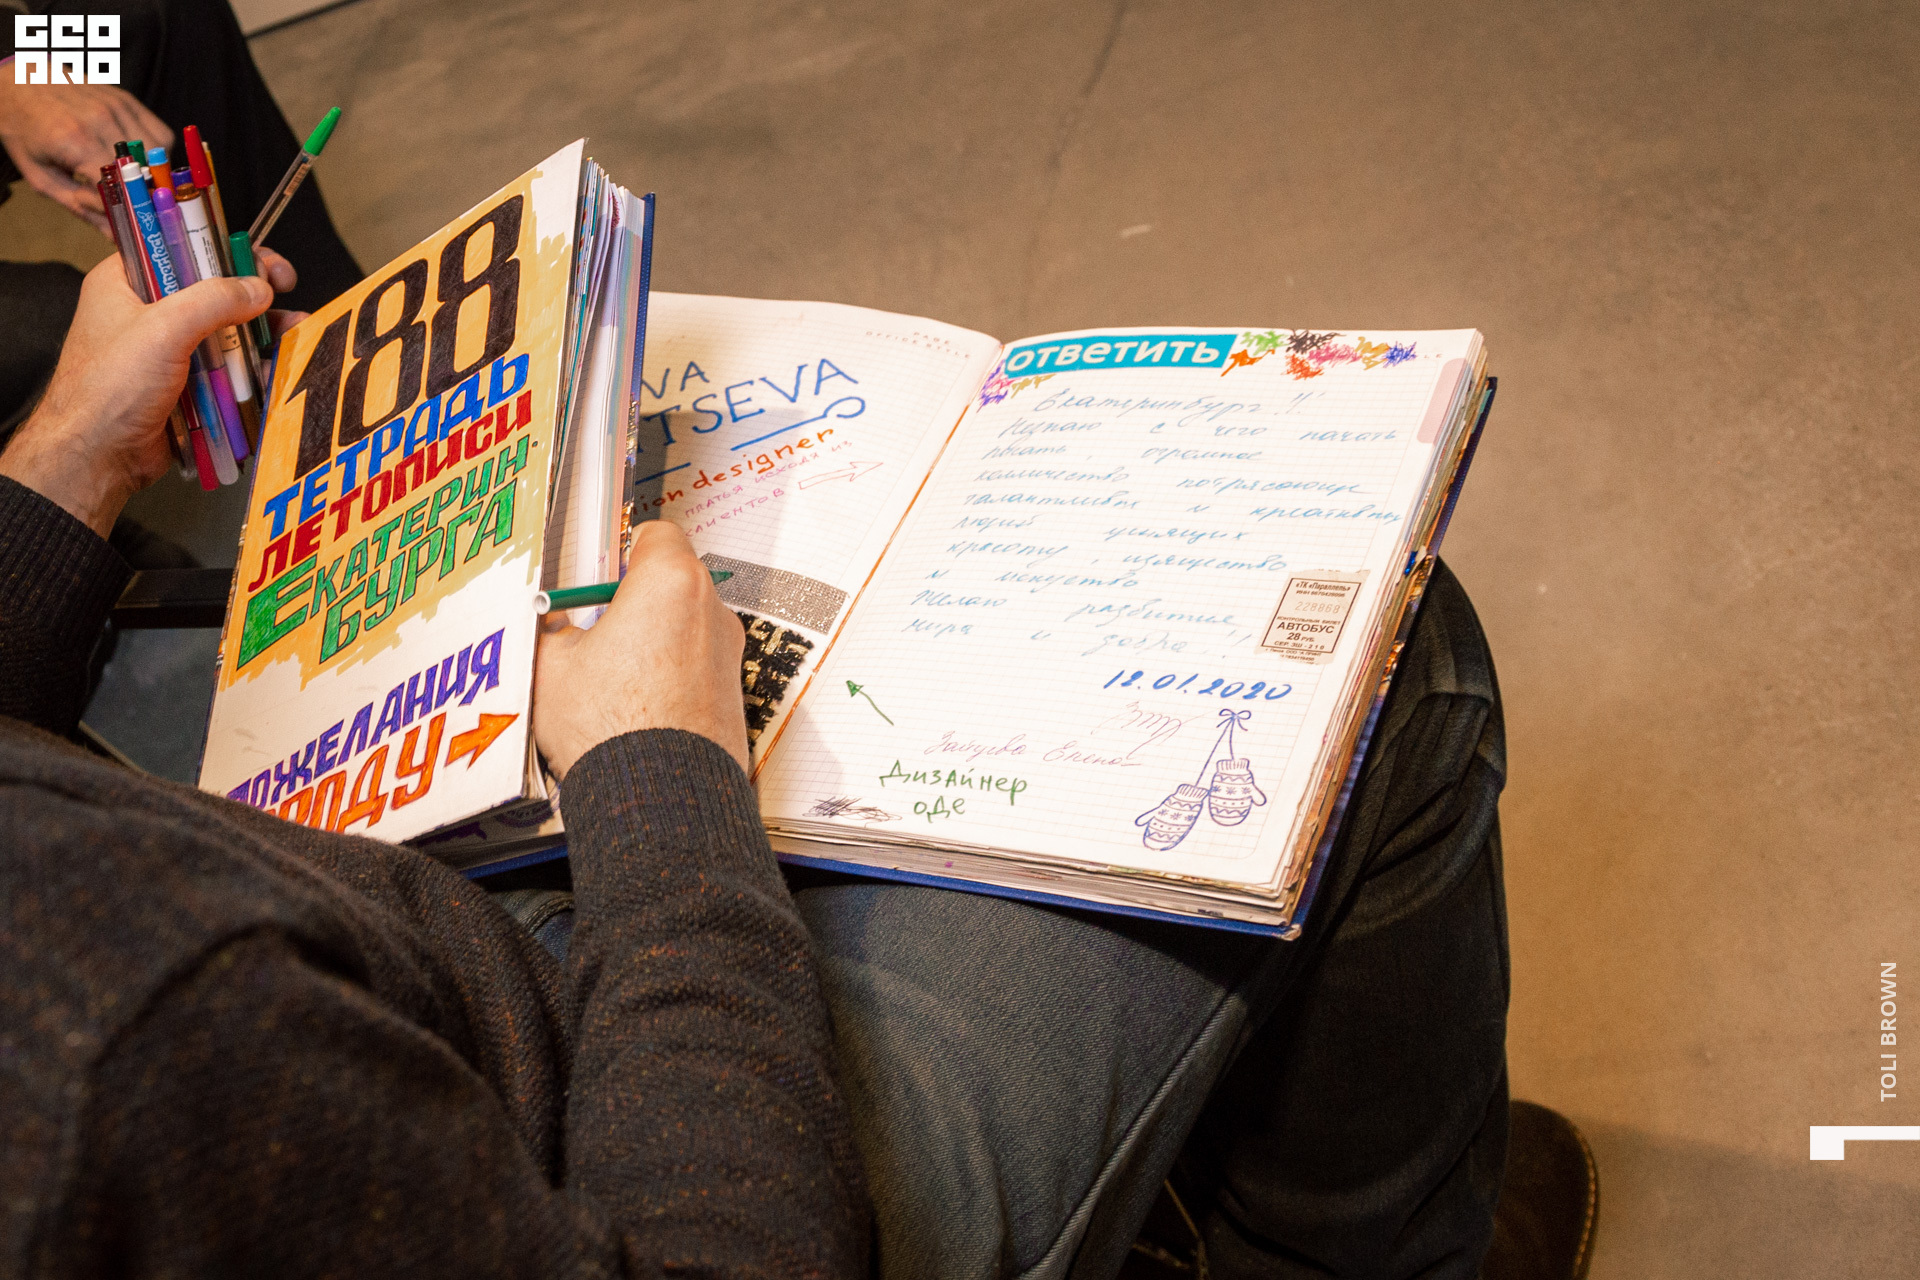 GEO
PRO
188
ТЕТРАДЬ
ЛЕТОПИСИ
ЕКАТЕРИН-
БУРГА
ПОЖЕЛАНИЯ
РОДУ
VA
TSEVA
ion designer
ПЛАТЬЯ ИСХОДЯ ИЗ
КЛИЕНТОВ
ОТВЕТИТЬ
Екатеринбург!!
с чего начать
писать, огромное
количество потрясающие
талантливых и креативных
людей
красоту, изящество
и искусство
Желаю развития
мира и добра!!
«ТК «Параллель»
228868
КОНТРОЛЬНЫЙ БИЛЕТ
АВТОБУС
28 РУБ.
12.01.2020
Зайцева Елена
Дизайнер
оде
TOLI BROWN